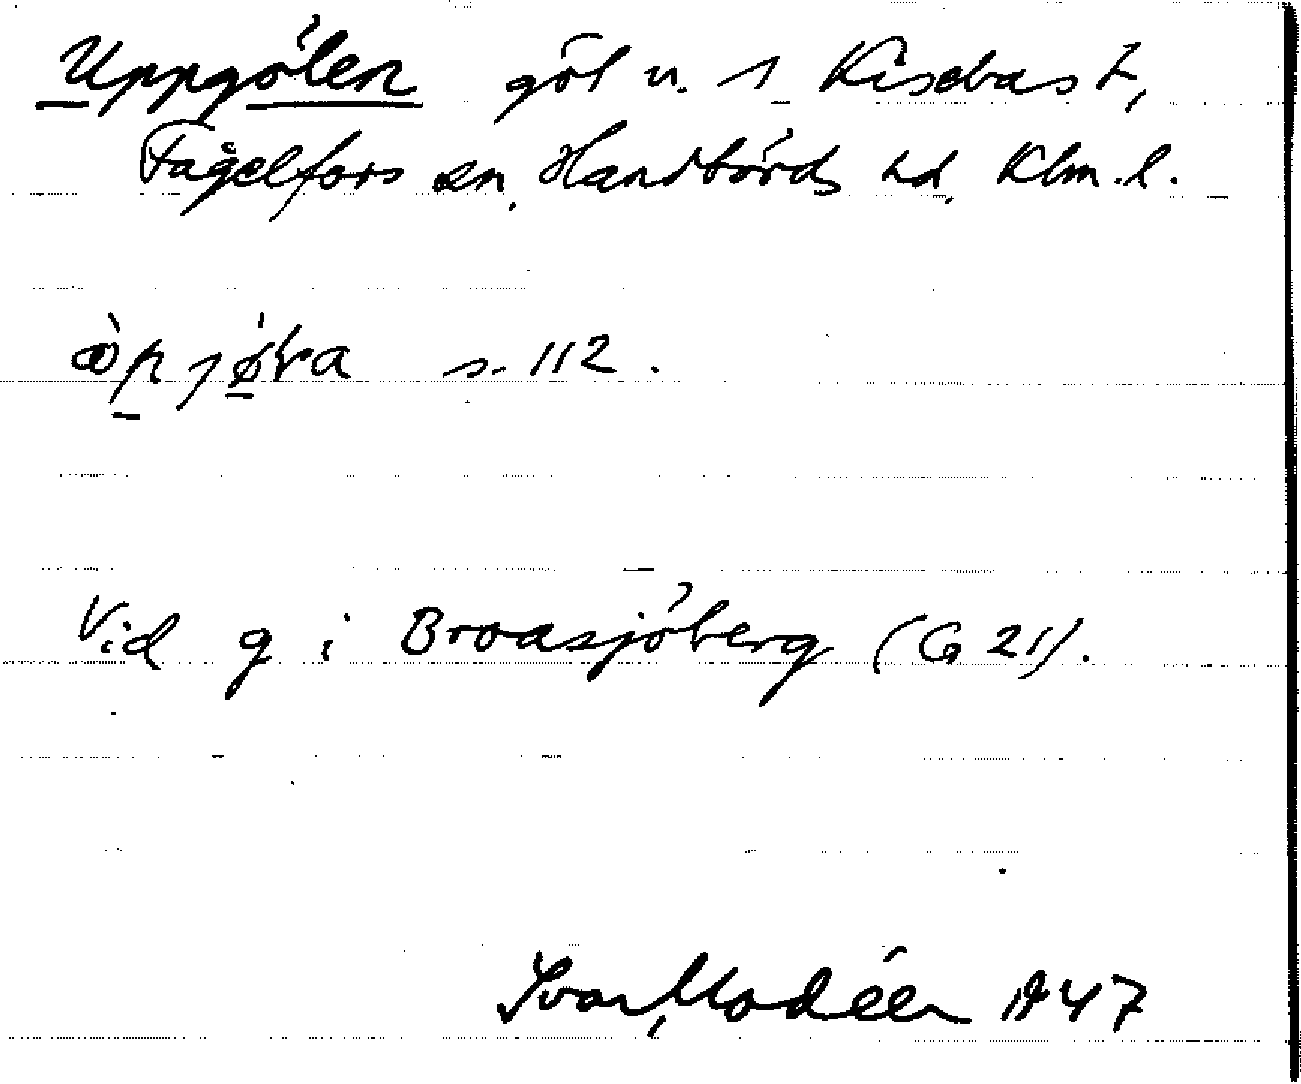 Uppgölen göl u. 1 Kisebast,
Fågelfors sn, Handbörds hd, Klm.l.
s. 112.
Vid g i Broasjöberg (G 21).
Ivar Modéer 1947